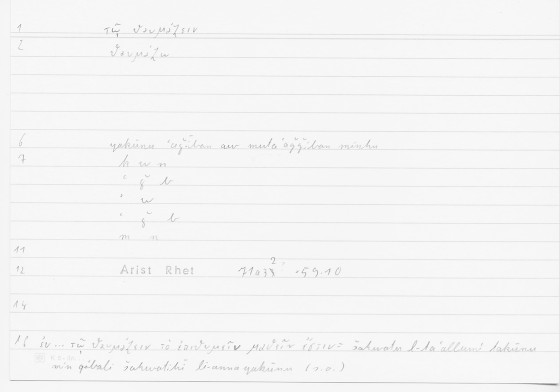 1 τῷ θαυμάζειν
2 θαυμάζω
6 yakūnu ʿaǧīban au mutaʿaǧǧiban minhu
7 k w n
ʿ ǧ b
ʾ w
ʿ ǧ b
m n
11
12 Arist Rhet 71a33² 59.10
14
16 ἐν... τῷ θαυμάζειν τὸ ἐπιθυμεῖν μαθεῖν ἐστιν= šahwatu t-taʿallumi takūnu
min qibali šahwatihī li-anna yakūnu (s.o.)